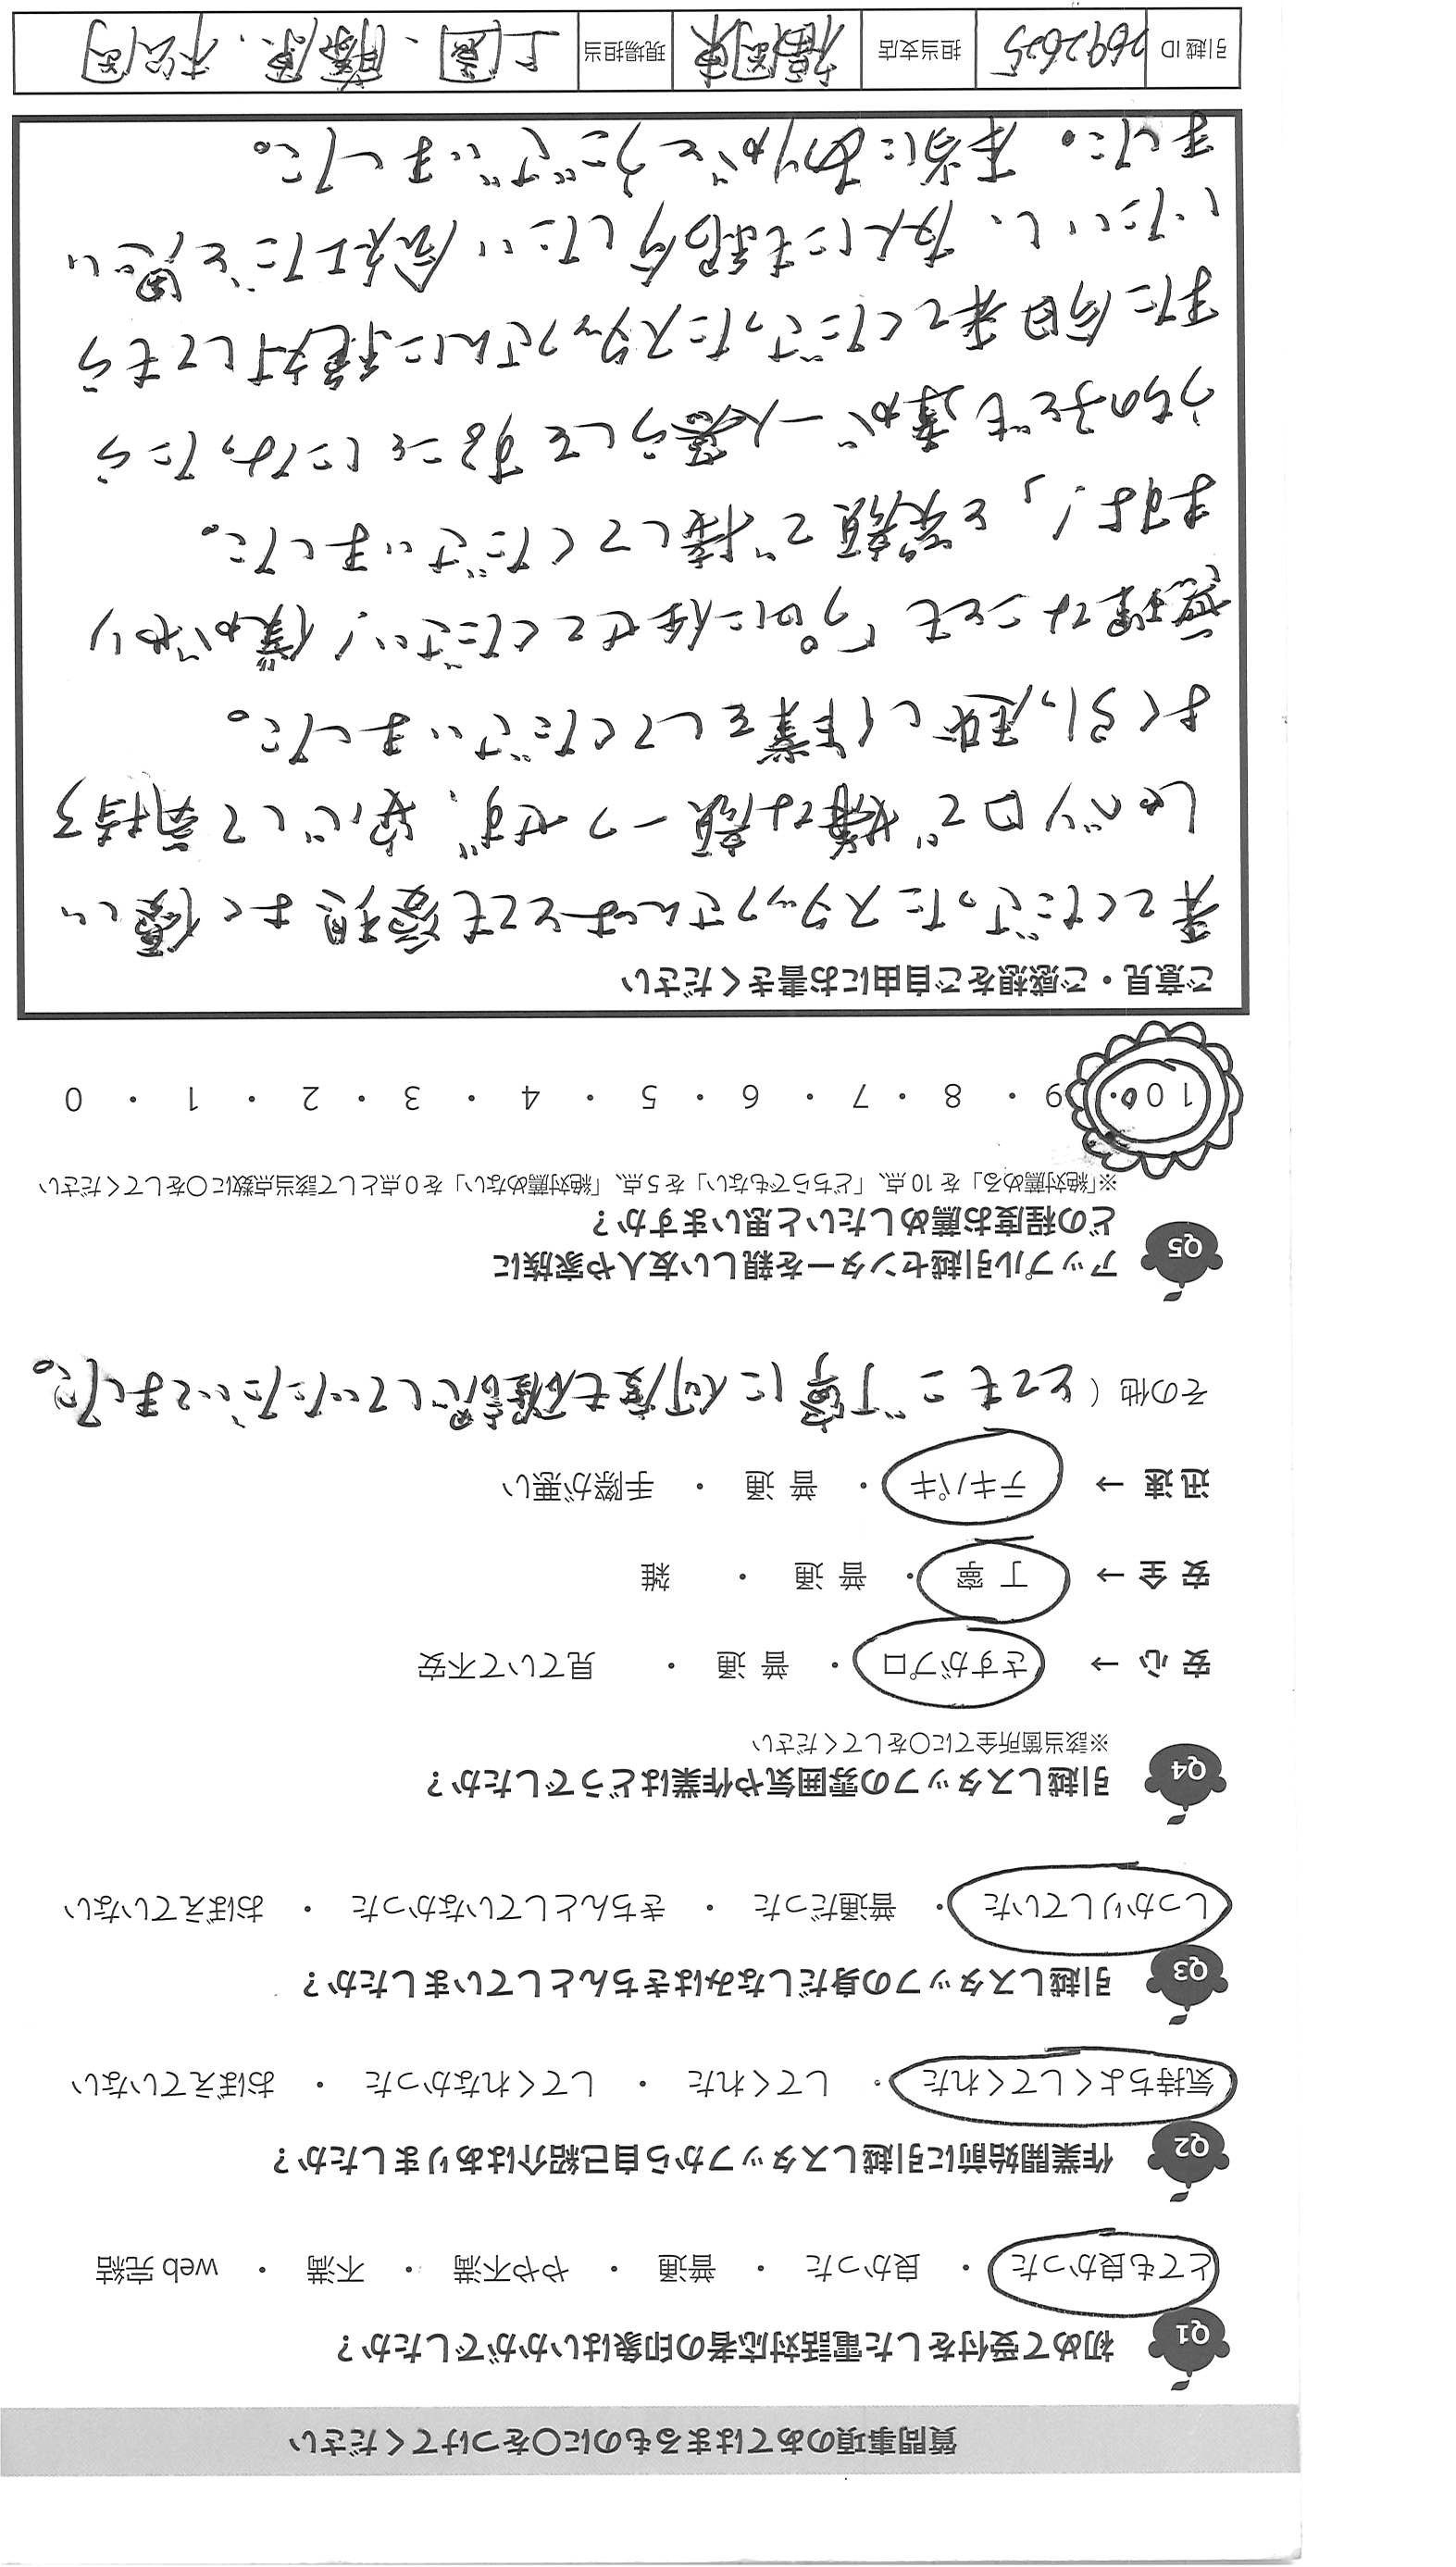 質問事項のあてはまるものに〇をつけてください
Q1 初めて受付をした電話対応者の印象はいかがでしたか？
とても良かった ・ 良かった ・ 普通 ・ やや不満 ・ 不満 ・ web 完結
Q2 作業開始前に引越しスタッフから自己紹介はありましたか？
気持ちよくしてくれた ・ してくれた ・ してくれなかった ・ おぼえていない
Q3 引越しスタッフの身だしなみはきちんとしていましたか？
しっかりしていた ・ 普通だった ・ きちんとしていなかった ・ おぼえていない
Q4 引越しスタッフの雰囲気や作業はどうでしたか？
※該当箇所全てに〇をしてください
安 心 → さすがプロ ・ 普 通 ・ 見ていて不安
安 全 → 丁 寧 ・ 普 通 ・ 雑
迅 速 → テキパキ ・ 普 通 ・ 手際が悪い
その他（ とてもご丁寧に何度も確認していただいてました。
Q5 アップル引越センターを親しい友人や家族に
どの程度お薦めしたいと思いますか？
※「絶対薦める」を 10 点、「どちらでもない」を 5 点、「絶対薦めない」を 0 点として該当点数に〇をしてください
10 ・ 9 ・ 8 ・ 7 ・ 6 ・ 5 ・ 4 ・ 3 ・ 2 ・ 1 ・ 0
ご意見・ご感想をご自由にお書きください
来てくださったスタッフさんはとても愛想よく優しい
しゃべり口で嫌な顔一つせず、安心して気持ち
よく引っ越し作業をしてくださいました。
無理なことも「プロに任せてください！僕がやり
ますよ！」と笑顔で接してくださいました。
うちの子ども達が一人暮らしをすることになったら
また今日来てくださったスタッフさんに絶対してもら
いたいし、友人にも紹介したい会社だと思い
ました。本当にありがとうございました。
引越 ID 2692625 担当支店 福岡東 現場担当 上園、藤原、松岡